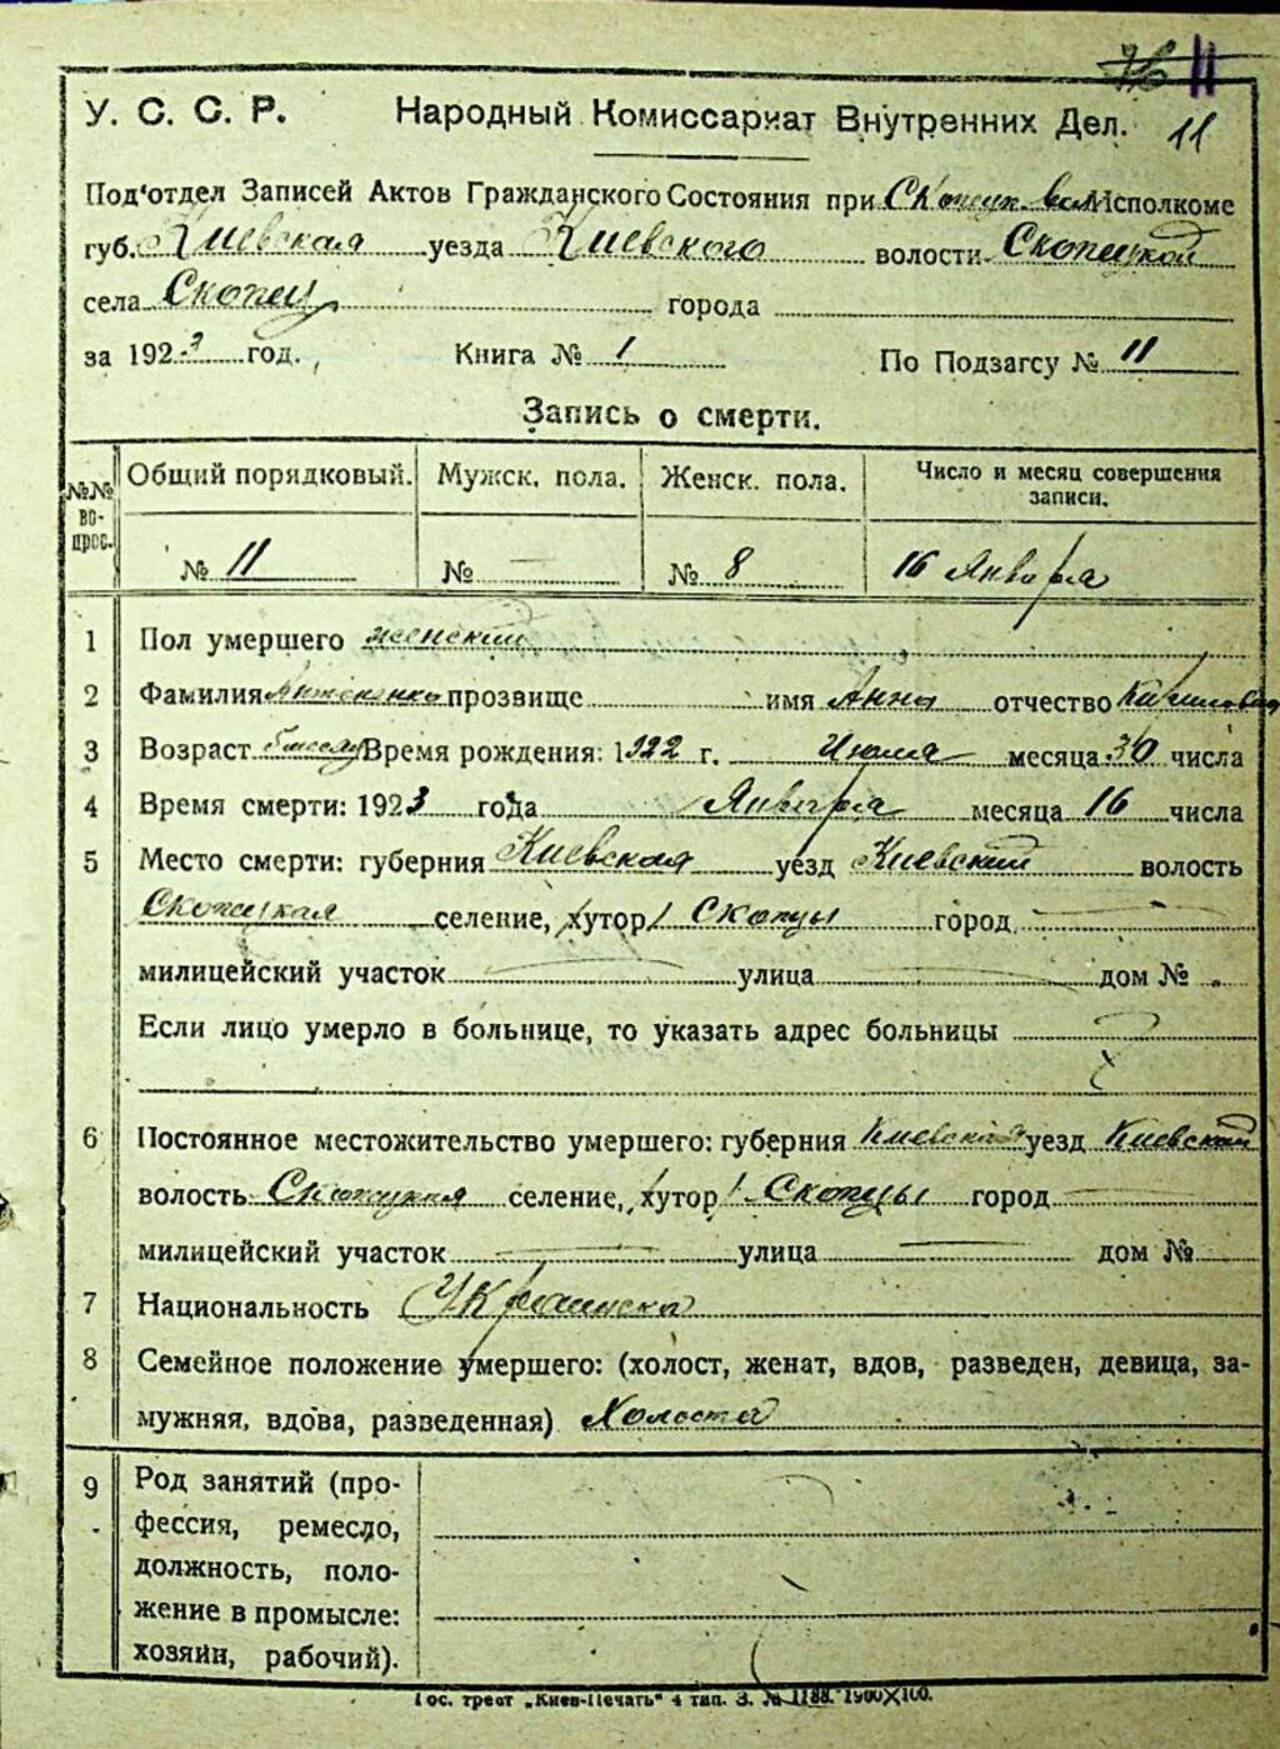 76 11
У. С. С. Р. Народный Комиссариат Внутренних Дел. 11
Под'отдел Записей Актов Гражданского Состояния при Скопецк. вол Исполкоме
губ. Киевская уезда Киевского волости Скопецкой
села Скопец города
за 1923 год. Книга № 1 По Подзагсу № 11
Запись о смерти.
№№ вопрос. Общий порядковый. Мужск. пола. Женск. пола. Число и месяц совершения записи.
№ 11 № — № 8 16 Января
1 Пол умершего женский
2 Фамилия прозвище имя Анна отчество
3 Возраст Время рождения: 1922 г. Июля месяца 30 числа
4 Время смерти: 1923 года Января месяца 16 числа
5 Место смерти: губерния Киевская уезд Киевский волость
Скопецкая селение, хутор Скопцы город —
милицейский участок — улица — дом №
Если лицо умерло в больнице, то указать адрес больницы
6 Постоянное местожительство умершего: губерния Киевская уезд Киевский
волость Скопецкая селение, хутор Скопцы город —
милицейский участок — улица — дом №
7 Национальность Украинска
8 Семейное положение умершего: (холост, женат, вдов, разведен, девица, за-
мужняя, вдова, разведенная) Холоста
9 Род занятий (про-
фессия, ремесло,
должность, поло-
жение в промысле:
хозяин, рабочий).
Гос. трест „Киев-Печать“ 4 тип. З. № 1188. 1900×100.